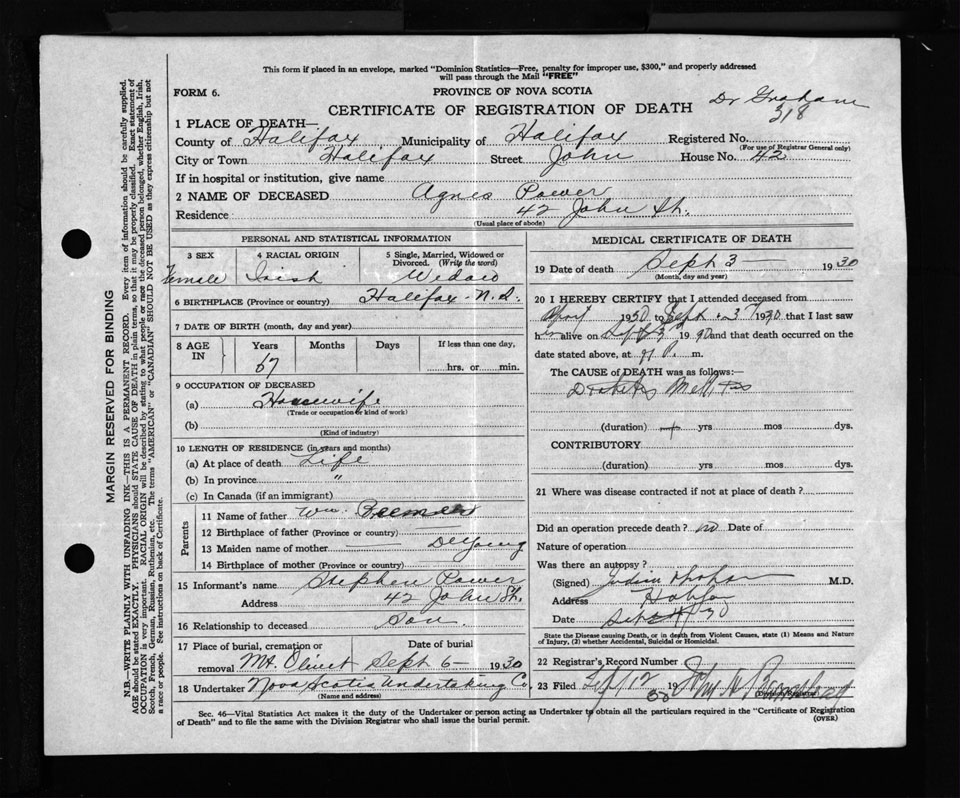 This form if placed in an envelope, marked "Dominion Statistics—Free, penalty for improper use, $300," and properly addressed
will pass through the Mail "FREE"
FORM 6.
PROVINCE OF NOVA SCOTIA
CERTIFICATE OF REGISTRATION OF DEATH
Dr Graham
318
1 PLACE OF DEATH—
County of Halifax Municipality of Halifax Registered No.
(For use of Registrar General only)
City or Town Halifax Street John House No. 42
If in hospital or institution, give name
2 NAME OF DECEASED Agnes Power
Residence 42 John St.
(Usual place of abode)
PERSONAL AND STATISTICAL INFORMATION
3 SEX 4 RACIAL ORIGIN 5 Single, Married, Widowed or
Divorced. (Write the word)
Female Irish Widow
6 BIRTHPLACE (Province or country) Halifax N.S.
7 DATE OF BIRTH (month, day and year)
8 AGE IN Years Months Days If less than one day,
67 hrs. or min.
9 OCCUPATION OF DECEASED
(a) Housewife
(Trade or occupation or kind of work)
(b)
(Kind of industry)
10 LENGTH OF RESIDENCE (in years and months)
(a) At place of death Life
(b) In province "
(c) In Canada (if an immigrant)
Parents
11 Name of father Wm.
12 Birthplace of father (Province or country)
13 Maiden name of mother — DeYoung
14 Birthplace of mother (Province or country)
15 Informant's name Stephen Power
Address 42 John St.
16 Relationship to deceased Son.
17 Place of burial, cremation or Date of burial
removal Mt. Olivet Sept 6— 1930
18 Undertaker Nova Scotia Undertaking Co.
(Name and address)
MEDICAL CERTIFICATE OF DEATH
19 Date of death Sept 3— 1930
(Month, day and year)
20 I HEREBY CERTIFY that I attended deceased from
April 1930 to Sept. 3 1930 that I last saw
alive on Sept 3 1930 and that death occurred on
date stated above, at P. m.
The CAUSE of DEATH was as follows:—
Diabetes Mellitus
(duration) yrs mos dys.
CONTRIBUTORY
(duration) yrs mos dys.
21 Where was disease contracted if not at place of death?
Did an operation precede death? no Date of
Nature of operation
Was there an autopsy?
(Signed) M.D.
Address Halifax
Date
State the Disease causing Death, or in death from Violent Causes, state (1) Means and Nature
of Injury, (2) whether Accidental, Suicidal or Homicidal.
22 Registrar's Record Number
23 Filed Sept 12 19 30
Sec. 46—Vital Statistics Act makes it the duty of the Undertaker or person acting as Undertaker to obtain all the particulars required in the "Certificate of Registration
of Death" and to file the same with the Division Registrar who shall issue the burial permit.
(OVER)
MARGIN RESERVED FOR BINDING
N.B.—WRITE PLAINLY WITH UNFADING INK—THIS IS A PERMANENT RECORD. Every item of information should be carefully supplied.
AGE should be stated EXACTLY. PHYSICIANS should STATE CAUSE OF DEATH in plain terms, so that it may be properly classified. Exact statement of
OCCUPATION is very important. RACIAL ORIGIN will be described by stating to what people or race the deceased person belonged, whether English, Irish,
Scotch, French, German, Russian, Ruthenian, etc. The terms "AMERICAN" or "CANADIAN" SHOULD NOT BE USED as they express citizenship but not
a race or people. See instructions on back of Certificate.